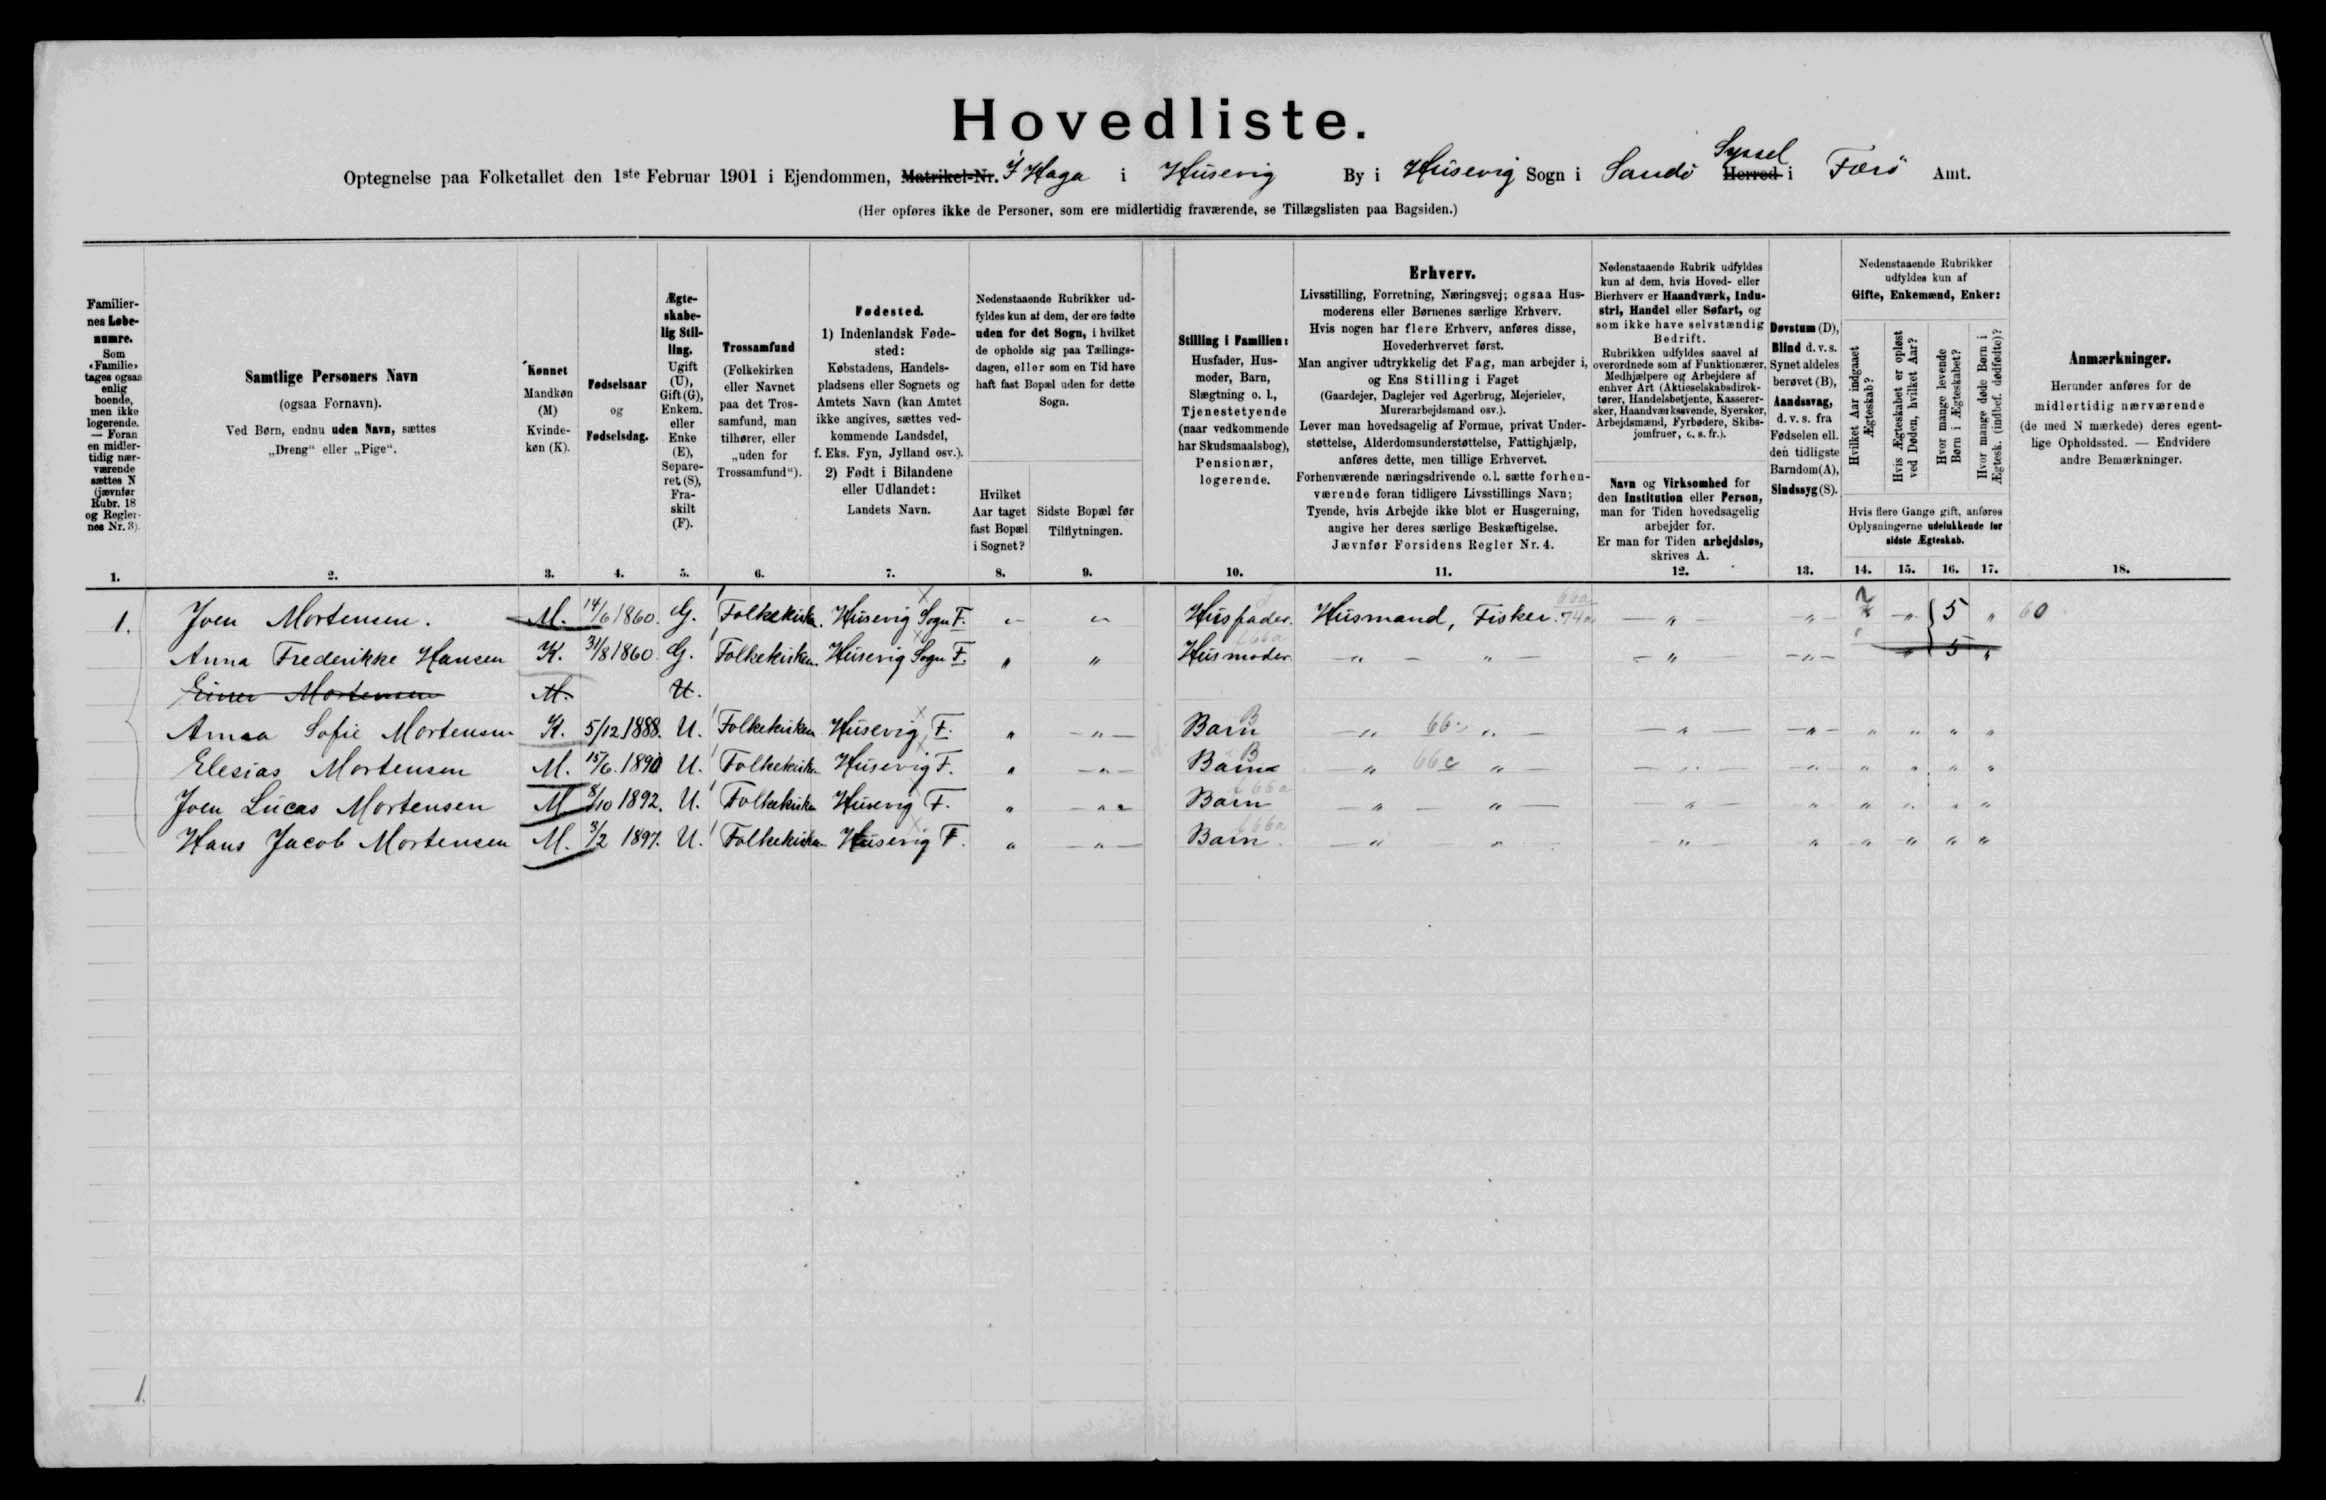 Hovedliste.
Optegnelse paa Folketallet den 1ste Februar 1901 i Ejendommen, Matrikel-Nr. Í Haga i Húsevig By i Húsevig Sogn i Sandö Herred Syssel i Færö Amt.
(Her opføres ikke de Personer, som ere midlertidig fraværende, se Tillægslisten paa Bagsiden.)
Familiernes Løbenumre. Som «Familie» tages ogsaa enlig boende, men ikke logerende. — Foran en midlertidig nærværende sættes N (jævnfør Rubr. 18 og Reglernes Nr. 3).
Samtlige Personers Navn (ogsaa Fornavn). Ved Børn, endnu uden Navn, sættes „Dreng“ eller „Pige“.
Kønnet Mandkøn (M) Kvindekøn (K).
Fødselsaar og Fødselsdag.
Ægteskabelig Stilling. Ugift (U), Gift (G), Enkem. eller Enke (E), Separeret (S), Fraskilt (F).
Trossamfund (Folkekirken eller Navnet paa det Trossamfund, man tilhører, eller „uden for Trossamfund“).
Fødested. 1) Indenlandsk Fødested: Købstadens, Handelspladsens eller Sognets og Amtets Navn (kan Amtet ikke angives, sættes vedkommende Landsdel, f. Eks. Fyn, Jylland osv.). 2) Født i Bilandene eller Udlandet: Landets Navn.
Nedenstaaende Rubrikker udfyldes kun af dem, der ere fødte uden for det Sogn, i hvilket de opholde sig paa Tællingsdagen, eller som en Tid have haft fast Bopæl uden for dette Sogn.
Hvilket Aar taget fast Bopæl i Sognet?
Sidste Bopæl før Tilflytningen.
Stilling i Familien: Husfader, Husmoder, Barn, Slægtning o. l., Tjenestetyende (naar vedkommende har Skudsmaalsbog), Pensionær, logerende.
Erhverv.
Livsstilling, Forretning, Næringsvej; ogsaa Husmoderens eller Børnenes særlige Erhverv.
Hvis nogen har flere Erhverv, anføres disse, Hovederhvervet først.
Man angiver udtrykkelig det Fag, man arbejder i, og Ens Stilling i Faget
(Gaardejer, Daglejer ved Agerbrug, Mejerielev, Murerarbejdsmand osv.).
Lever man hovedsagelig af Formue, privat Understøttelse, Alderdomsunderstøttelse, Fattighjælp, anføres dette, men tillige Erhvervet.
Forhenværende næringsdrivende o. l. sætte forhenværende foran tidligere Livsstillings Navn;
Tyende, hvis Arbejde ikke blot er Husgerning, angive her deres særlige Beskæftigelse.
Jævnfør Forsidens Regler Nr. 4.
Nedenstaaende Rubrik udfyldes kun af dem, hvis Hoved- eller Bierhverv er Haandværk, Industri, Handel eller Søfart, og som ikke have selvstændig Bedrift.
Rubrikken udfyldes saavel af overordnede som af Funktionærer, Medhjælpere og Arbejdere af enhver Art (Aktieselskabsdirektører, Handelsbetjente, Kasserersker, Haandværkssvende, Syersker, Arbejdsmænd, Fyrbødere, Skibsjomfruer, o. s. fr.).
Navn og Virksomhed for den Institution eller Person, man for Tiden hovedsagelig arbejder for.
Er man for Tiden arbejdsløs, skrives A.
Døvstum (D), Blind d. v. s. Synet aldeles berøvet (B), Aandssvag, d. v. s. fra Fødselen ell. den tidligste Barndom (A), Sindssyg (S).
Nedenstaaende Rubrikker udfyldes kun af Gifte, Enkemænd, Enker:
Hvilket Aar indgaaet Ægteskab?
Hvis Ægteskabet er opløst ved Døden, hvilket Aar?
Hvor mange levende Børn i Ægteskabet?
Hvor mange døde Børn i Ægtesk. (indbef. dødfødte)?
Hvis flere Gange gift, anføres Oplysningerne udelukkende for sidste Ægteskab.
Anmærkninger.
Herunder anføres for de midlertidig nærværende (de med N mærkede) deres egentlige Opholdssted. — Endvidere andre Bemærkninger.
1. 2. 3. 4. 5. 6. 7. 8. 9. 10. 11. 12. 13. 14. 15. 16. 17. 18.
1. Joen Mortensen. M. 14/6 1860. G. Folkekirken. Húsevig Sogn F. „ „ Húsfader. Húsmand, Fisker. — „ — „ „ 5 „ 60
Anna Frederikke Hansen K. 31/8 1860 G. Folkekirken. Húsevig Sogn F. „ „ Húsmoder — „ — „ — — „ — „ — „ 5 „
Mortensen M. U.
Anna Sofie Mortensen K. 5/12 1888. U. Folkekirken Húsevig, F. „ — „ — Barn — „ 66 „ — — „ — — „ — „ „ „ „
Elesias Mortensen M. 15/6 1890 U. Folkekirken Húsevig F. „ — „ — Barn — „ 66c „ — — „ — — „ — „ „ „ „
Joen Lúcas Mortensen M 8/10 1892. U. Folkekirken Húsevig F. „ — „ Barn — „ — „ — — „ — „ „ „ „ „
Hans Jacob Mortensen M. 3/2 1897. U. Folkekirken. Húsevig F. „ — „ — Barn. — „ — „ — — „ — „ „ „ „ „
1.